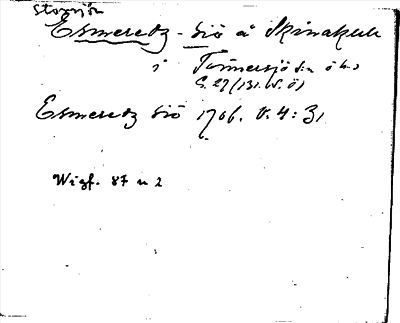 Storsjön
Esmeretz-siö å Skinakulla
i Tönnersjö sn ö ln
S. 27 (131. V. Ö)
Esmeretz Siö 1706. V. 4: 31
Wigf. 87 n 2